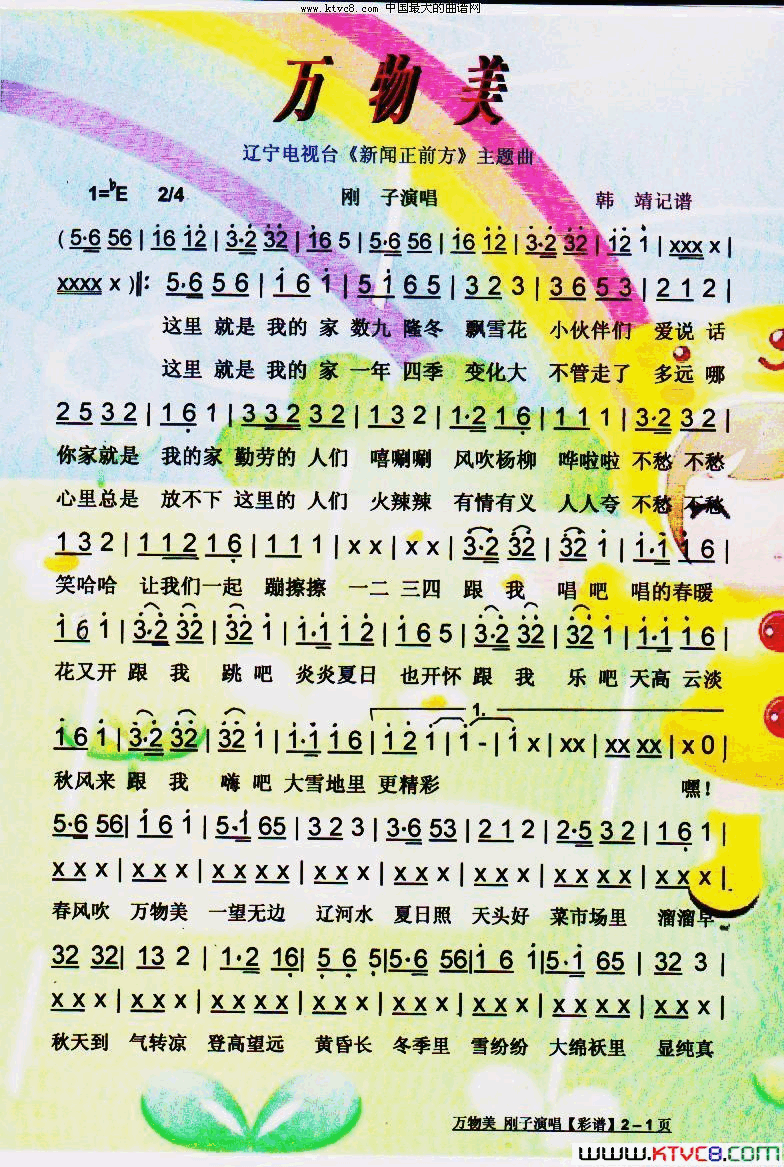 www.ktvc8.com 中国最大的曲谱网
万物美
辽宁电视台《新闻正前方》主题曲
1=♭E 2/4 刚 子演唱 韩 靖记谱
( 5·6 56 | 16 12 | 3·2 32 | 16 5 | 5·6 56 | 16 12 | 3·2 32 | 12 1 | xxx x |
xxxx x ) ‖: 5·6 5 6 | 1 6 1 | 5 1 6 5 | 3 2 3 | 3 6 5 3 | 2 1 2 |
这里 就是 我的 家 数九 隆冬 飘雪花 小伙伴们 爱说 话
这里 就是 我的 家 一年 四季 变化大 不管走了 多远 哪
2 5 3 2 | 1 6 1 | 3 3 2 3 2 | 1 3 2 | 1·2 1 6 | 1 1 1 | 3·2 3 2 |
你家就是 我的家 勤劳的 人们 嘻唰唰 风吹杨柳 哗啦啦 不愁 不愁
心里总是 放不下 这里的 人们 火辣辣 有情有义 人人夸 不愁 不愁
1 3 2 | 1 1 2 1 6 | 1 1 1 | x x | x x | 3·2 3 2 | 3 2 1 | 1·1 1 6 |
笑哈哈 让我们一起 蹦擦擦 一二 三四 跟 我 唱 吧 唱的春暖
1 6 1 | 3·2 32 | 32 1 | 1·1 1 2 | 1 6 5 | 3·2 32 | 32 1 | 1·1 1 6 |
花又开 跟 我 跳 吧 炎炎夏日 也开怀 跟 我 乐 吧 天高 云淡
1 6 1 | 3·2 32 | 32 1 | 1·1 1 6 | 1 2 1 | 1. 1 - | 1 x | xx | xx xx | x 0 |
秋风来 跟 我 嗨 吧 大雪地里 更精彩 嘿！
5·6 56 | 1 6 1 | 5·1 65 | 3 2 3 | 3·6 53 | 2 1 2 | 2·5 3 2 | 1 6 1 |
x x x | x x x | x x x x | x x x | x x x | x x x | x x x x | x x x |
春风吹 万物美 一望无边 辽河水 夏日照 天头好 菜市场里 溜溜早
32 32 | 13 2 | 1·2 16 | 5 6 5 | 5·6 56 | 1 6 1 | 5·1 65 | 32 3 |
x x x | x x x | x x x x | x x x | x x x | x x x | x x x x | x x x |
秋天到 气转凉 登高望远 黄昏长 冬季里 雪纷纷 大绵袄里 显纯真
万物美 刚子演唱【彩谱】2－1页
www.KTVC8.com